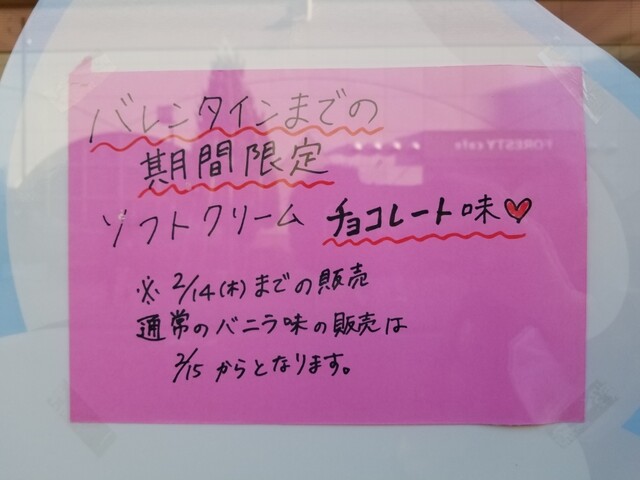 バレンタインまでの
期間限定
ソフトクリーム チョコレート味♥
※2/14(木)までの販売
通常のバニラ味の販売は
2/15からとなります。
FORESTY cafe